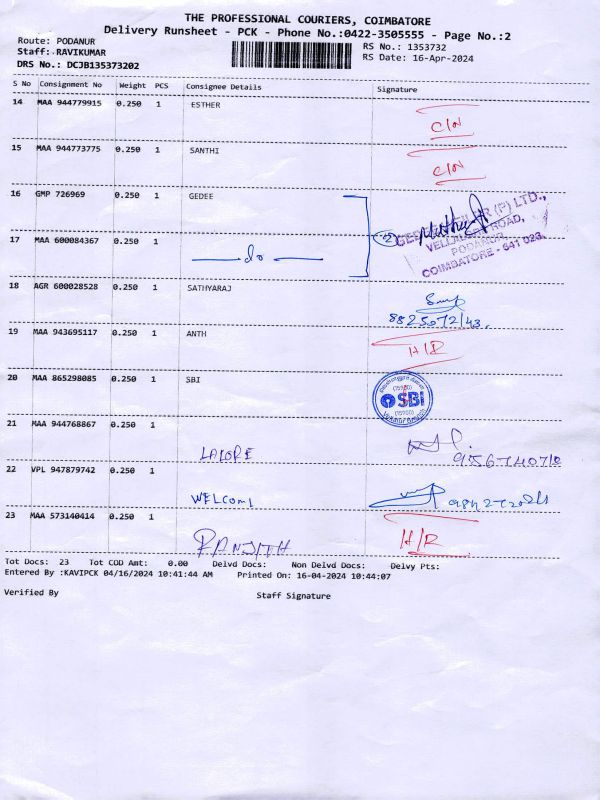 THE PROFESSIONAL COURIERS, COIMBATORE
Delivery Runsheet - PCK - Phone No.:0422-3505555 - Page No.:2
Route: PODANUR
Staff: RAVIKUMAR
DRS No.: DCJB135373202
RS No.: 1353732
RS Date: 16-Apr-2024
S No Consignment No Weight PCS Consignee Details Signature
14 MAA 944779915 0.250 1 ESTHER C/N
15 MAA 944773775 0.250 1 SANTHI C/N
16 GMP 726969 0.250 1 GEDEE
(P) LTD.,
ROAD,
PODANUR,
COIMBATORE - 641 023.
17 MAA 600084367 0.250 1 do
18 AGR 600028528 0.250 1 SATHYARAJ
19 MAA 943695117 0.250 1 ANTH H/R
20 MAA 865298085 0.250 1 SBI SBI
21 MAA 944768867 0.250 1
22 VPL 947879742 0.250 1 WELCOM
23 MAA 573140414 0.250 1 RANJITH H/R
Tot Docs: 23 Tot COD Amt: 0.00 Delvd Docs: Non Delvd Docs: Delvy Pts:
Entered By :KAVIPCK 04/16/2024 10:41:44 AM Printed On: 16-04-2024 10:44:07
Verified By Staff Signature